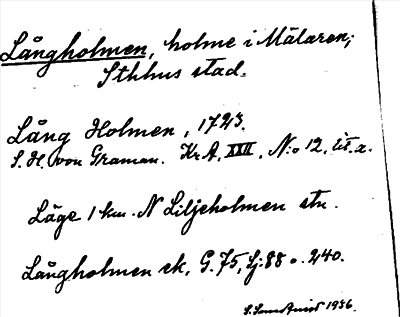 Långholmen, holme i Mälaren;
Sthlms stad.
Lång Holmen, 1723.
S. H. von Graman. Kr A, XXII, N:o 12, lit. a.
Läge 1 km. N Liljeholmen stn.
Långholmen ek, G. 75, Lj: 88 o. 240.
1936.